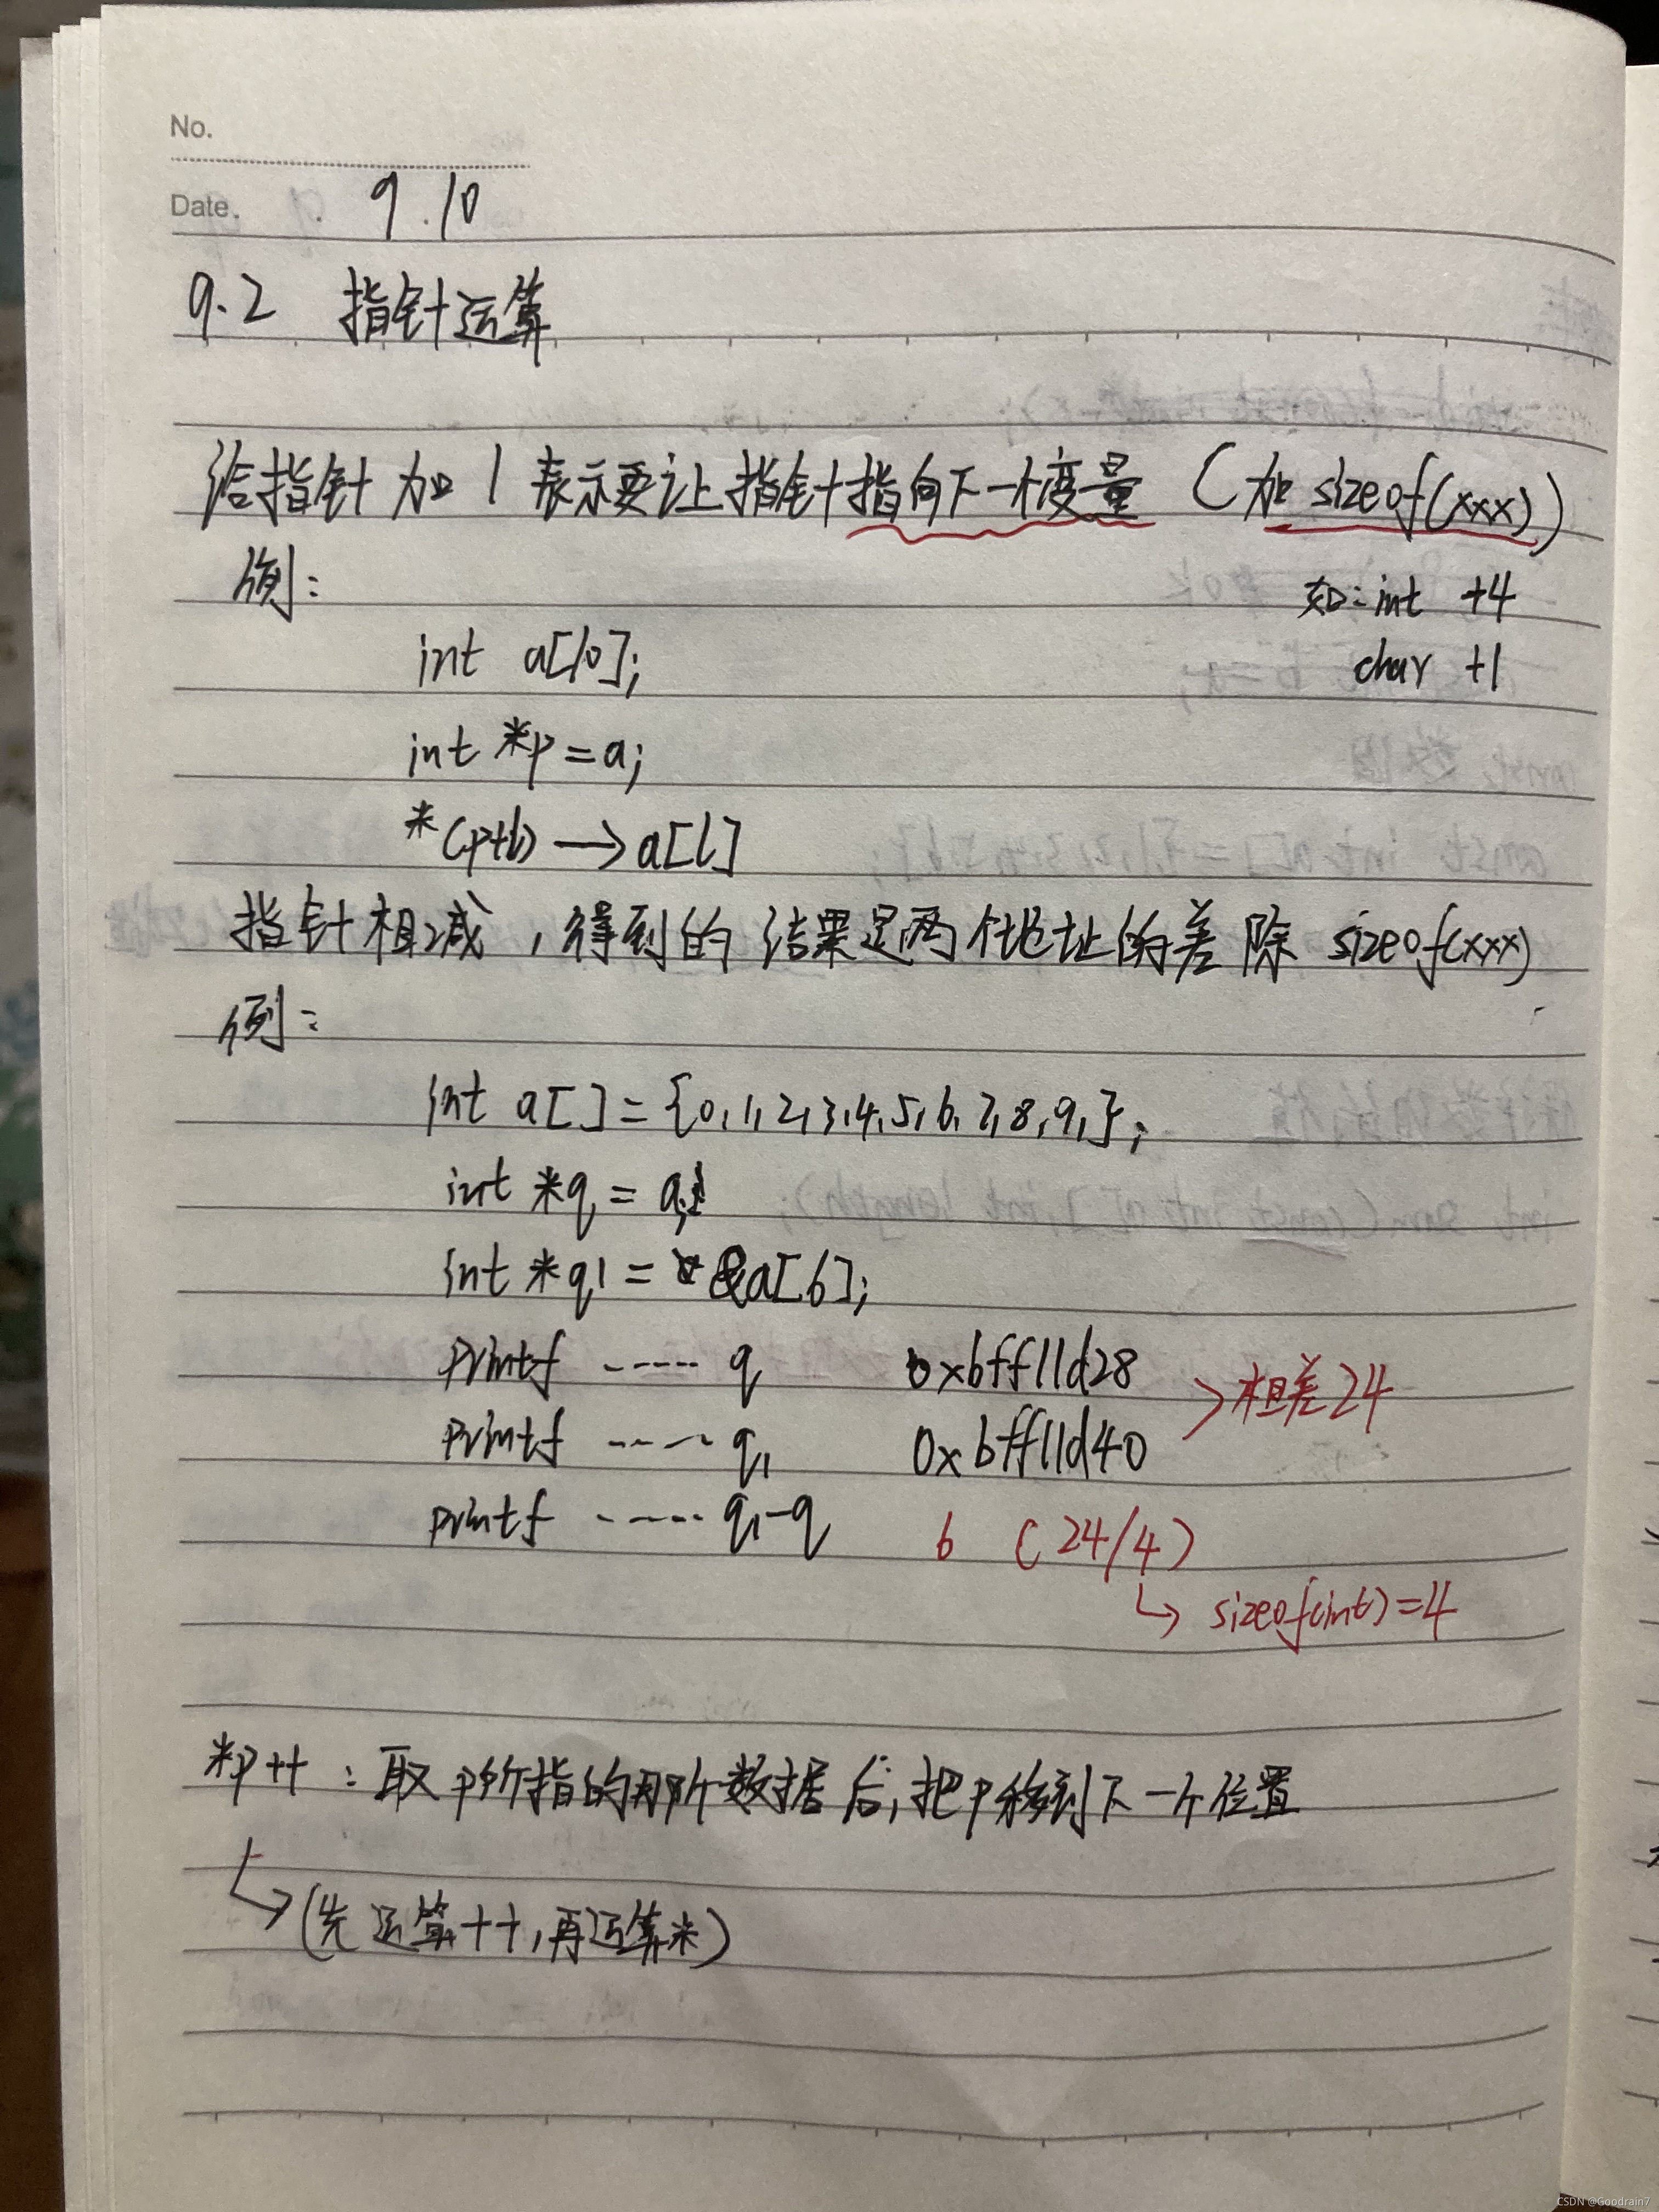 No.
Date. 9.10
9.2 指针运算
给指针加1表示要让指针指向下一个变量（加sizeof(xxx)）
例： 如：int +4
int a[10]; char +1
int *p=a;
*(p+1)→a[1]
指针相减，得到的结果是两个地址的差除sizeof(xxx)
例：
int a[]={0,1,2,3,4,5,6,7,8,9,};
int *q=a;
int *q1=&a[6];
printf ----- q 0xbff11d28 >相差24
printf ----- q1 0xbff11d40
printf ----- q1-q 6 (24/4)
↳ sizeof(int)=4
*p++：取p所指的那个数据后，把p移到下一个位置
↳(先运算++,再运算*)
CSDN @Goodrain7